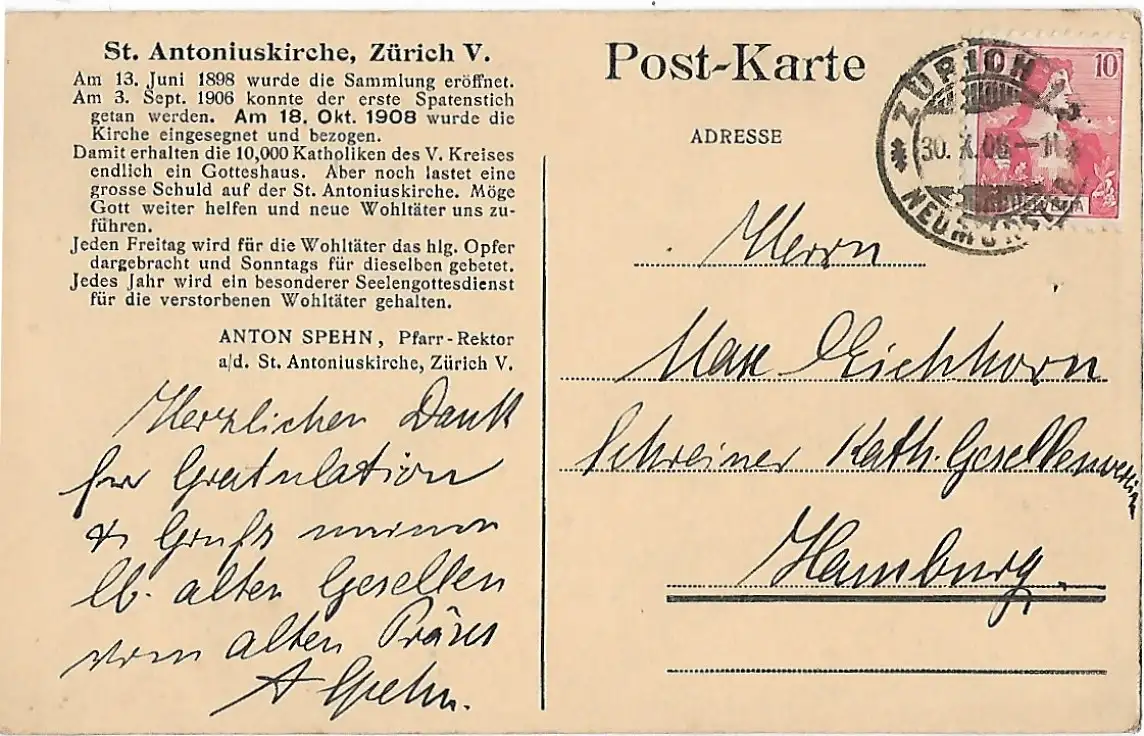 St. Antoniuskirche, Zürich V.
Am 13. Juni 1898 wurde die Sammlung eröffnet.
Am 3. Sept. 1906 konnte der erste Spatenstich
getan werden. Am 18. Okt. 1908 wurde die
Kirche eingesegnet und bezogen.
Damit erhalten die 10,000 Katholiken des V. Kreises
endlich ein Gotteshaus. Aber noch lastet eine
grosse Schuld auf der St. Antoniuskirche. Möge
Gott weiter helfen und neue Wohltäter uns zu-
führen.
Jeden Freitag wird für die Wohltäter das hlg. Opfer
dargebracht und Sonntags für dieselben gebetet.
Jedes Jahr wird ein besonderer Seelengottesdienst
für die verstorbenen Wohltäter gehalten.
ANTON SPEHN, Pfarr-Rektor
a/d. St. Antoniuskirche, Zürich V.
Herzlichen Dank
für Gratulation
& Gruß meinen
lb. alten Gesellen
vom alten Präses
A Spehn.
Post-Karte
ADRESSE
Herrn
Max Eichhorn
Schreiner Kath. Gesellenverein
Hamburg.
10
ZÜRICH
30. X. 08-11
NEUMÜNSTER
HELVETIA